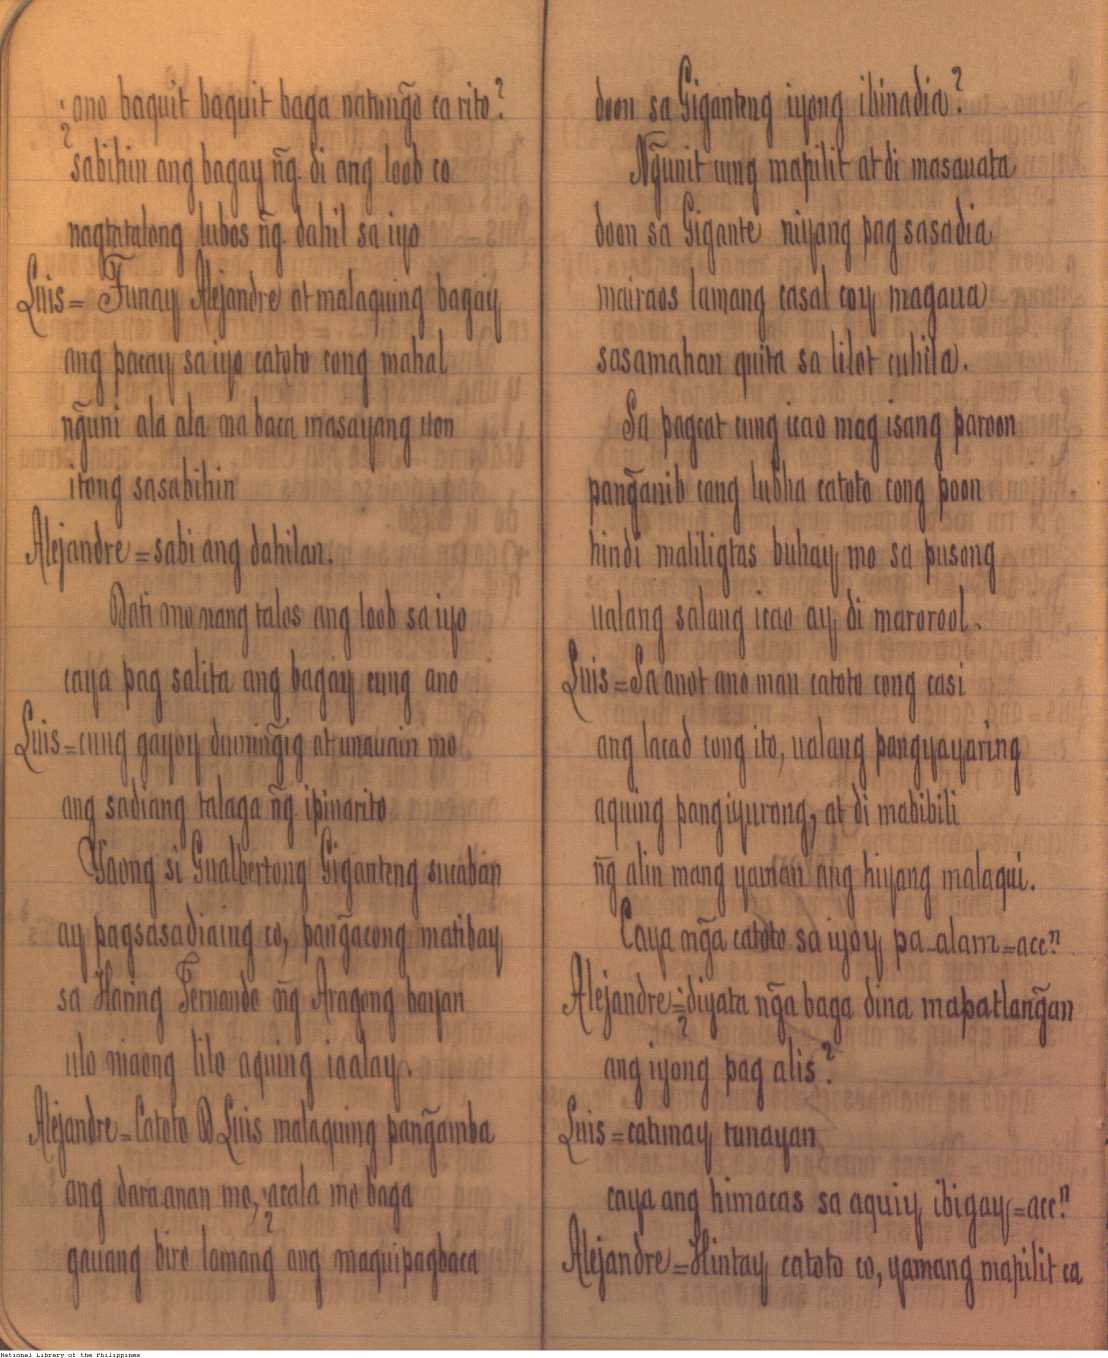 ¿ano baquit baquit baga natung̃o ca rito?
sabihin ang bagay ñg. di ang loob co
nagtatalong lubos ñg. dahil sa iyo
Luis= Tunay Alejandre at malaquing bagay
ang pacay sa iyo catoto cong mahal
ng̃uni ala ala na baca masayang
itong sasabihin
Alejandre=sabi ang dahilan.
Dati mo nang talos ang loob sa iyo
caya pag salita ang bagay cung ano
Luis=cung gayoy duming̃ig at unauain mo
ang sadiang talaga ñg. ipinarito
Yaong si Gualbertong Giganteng sucaban
ay pagsasadiaing co, pang̃acong matibay
sa Haring Fernando ñg Aragong bayan
ulo niaong lilo aquing iaalay.
Alejandre=Catoto D Luis malaquing pang̃amba
ang daraanan mo, ¿acala mo baga
gauang biro lamang ang maquipagbaca
doon sa Giganteng iyong ibinadia?
Ng̃unit cung mapilit at di masauata
doon sa Gigante niyang pag sasadia
mairaos lamang casal coy magaua
sasamahan quita sa lilot cuhila.
Sa pagcat cung icao mag isang paroon
pang̃anib cang lubha catoto cong poon
hindi maliligtas buhay mo sa pusong
ualang salang icao ay di marorool.
Luis=Sa anot ano man catoto cong casi
ang lacad cong ito, ualang pangyayaring
aquing pangiyurong, at di mabibili
ñg alin mang yaman ang hiyang malaqui.
Caya ng̃a catoto sa iyoy pa-alam=accn
Alejandre=¿diyata ng̃a baga dina mapatlang̃an
ang iyong pag alis?
Luis=catunay tunayan
caya ang himacas sa aquiy ibigay=accn
Alejandre=Hintay catoto co, yamang mapilit ca
National Library of the Philippines